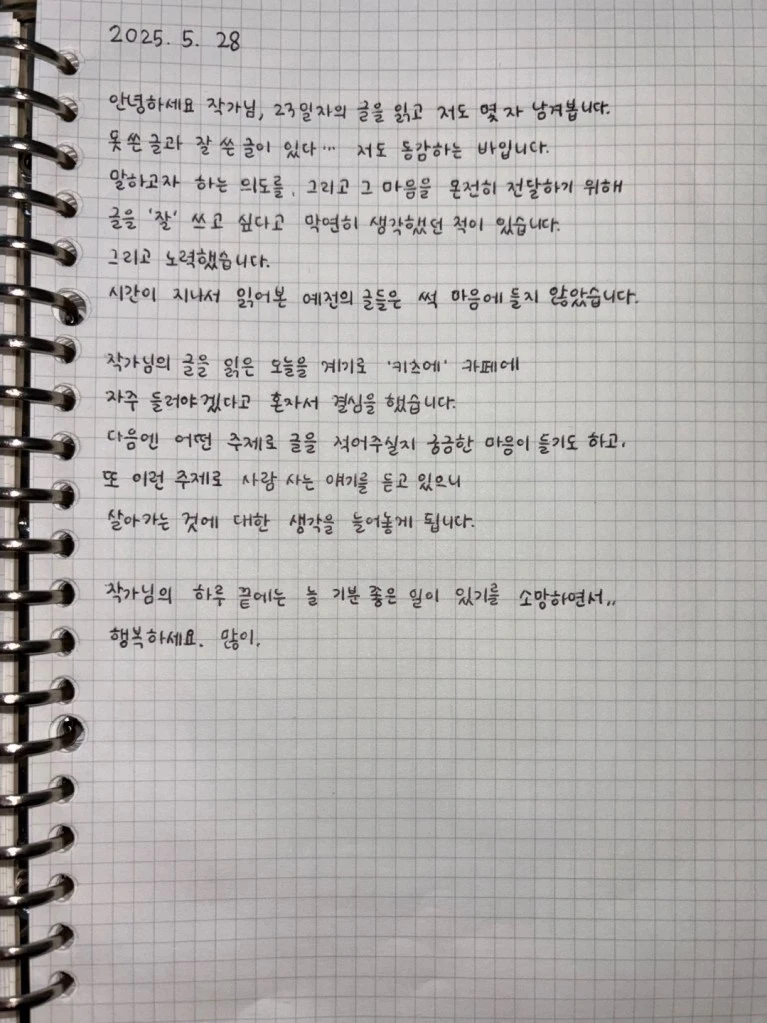 2025. 5. 28
안녕하세요 작가님, 23일자의 글을 읽고 저도 몇 자 남겨봅니다.
못 쓴 글과 잘 쓴 글이 있다... 저도 동감하는 바입니다.
말하고자 하는 의도를, 그리고 그 마음을 온전히 전달하기 위해
글을 '잘' 쓰고 싶다고 막연히 생각했던 적이 있습니다.
그리고 노력했습니다.
시간이 지나서 읽어본 예전의 글들은 썩 마음에 들지 않았습니다.
작가님의 글을 읽은 오늘을 계기로 '키츠에' 카페에
자주 들러야겠다고 혼자서 결심을 했습니다.
다음엔 어떤 주제로 글을 적어주실지 궁금한 마음이 들기도 하고,
또 이런 주제로 사람 사는 얘기를 듣고 있으니
살아가는 것에 대한 생각을 늘어놓게 됩니다.
작가님의 하루 끝에는 늘 기분 좋은 일이 있기를 소망하면서..
행복하세요. 많이.